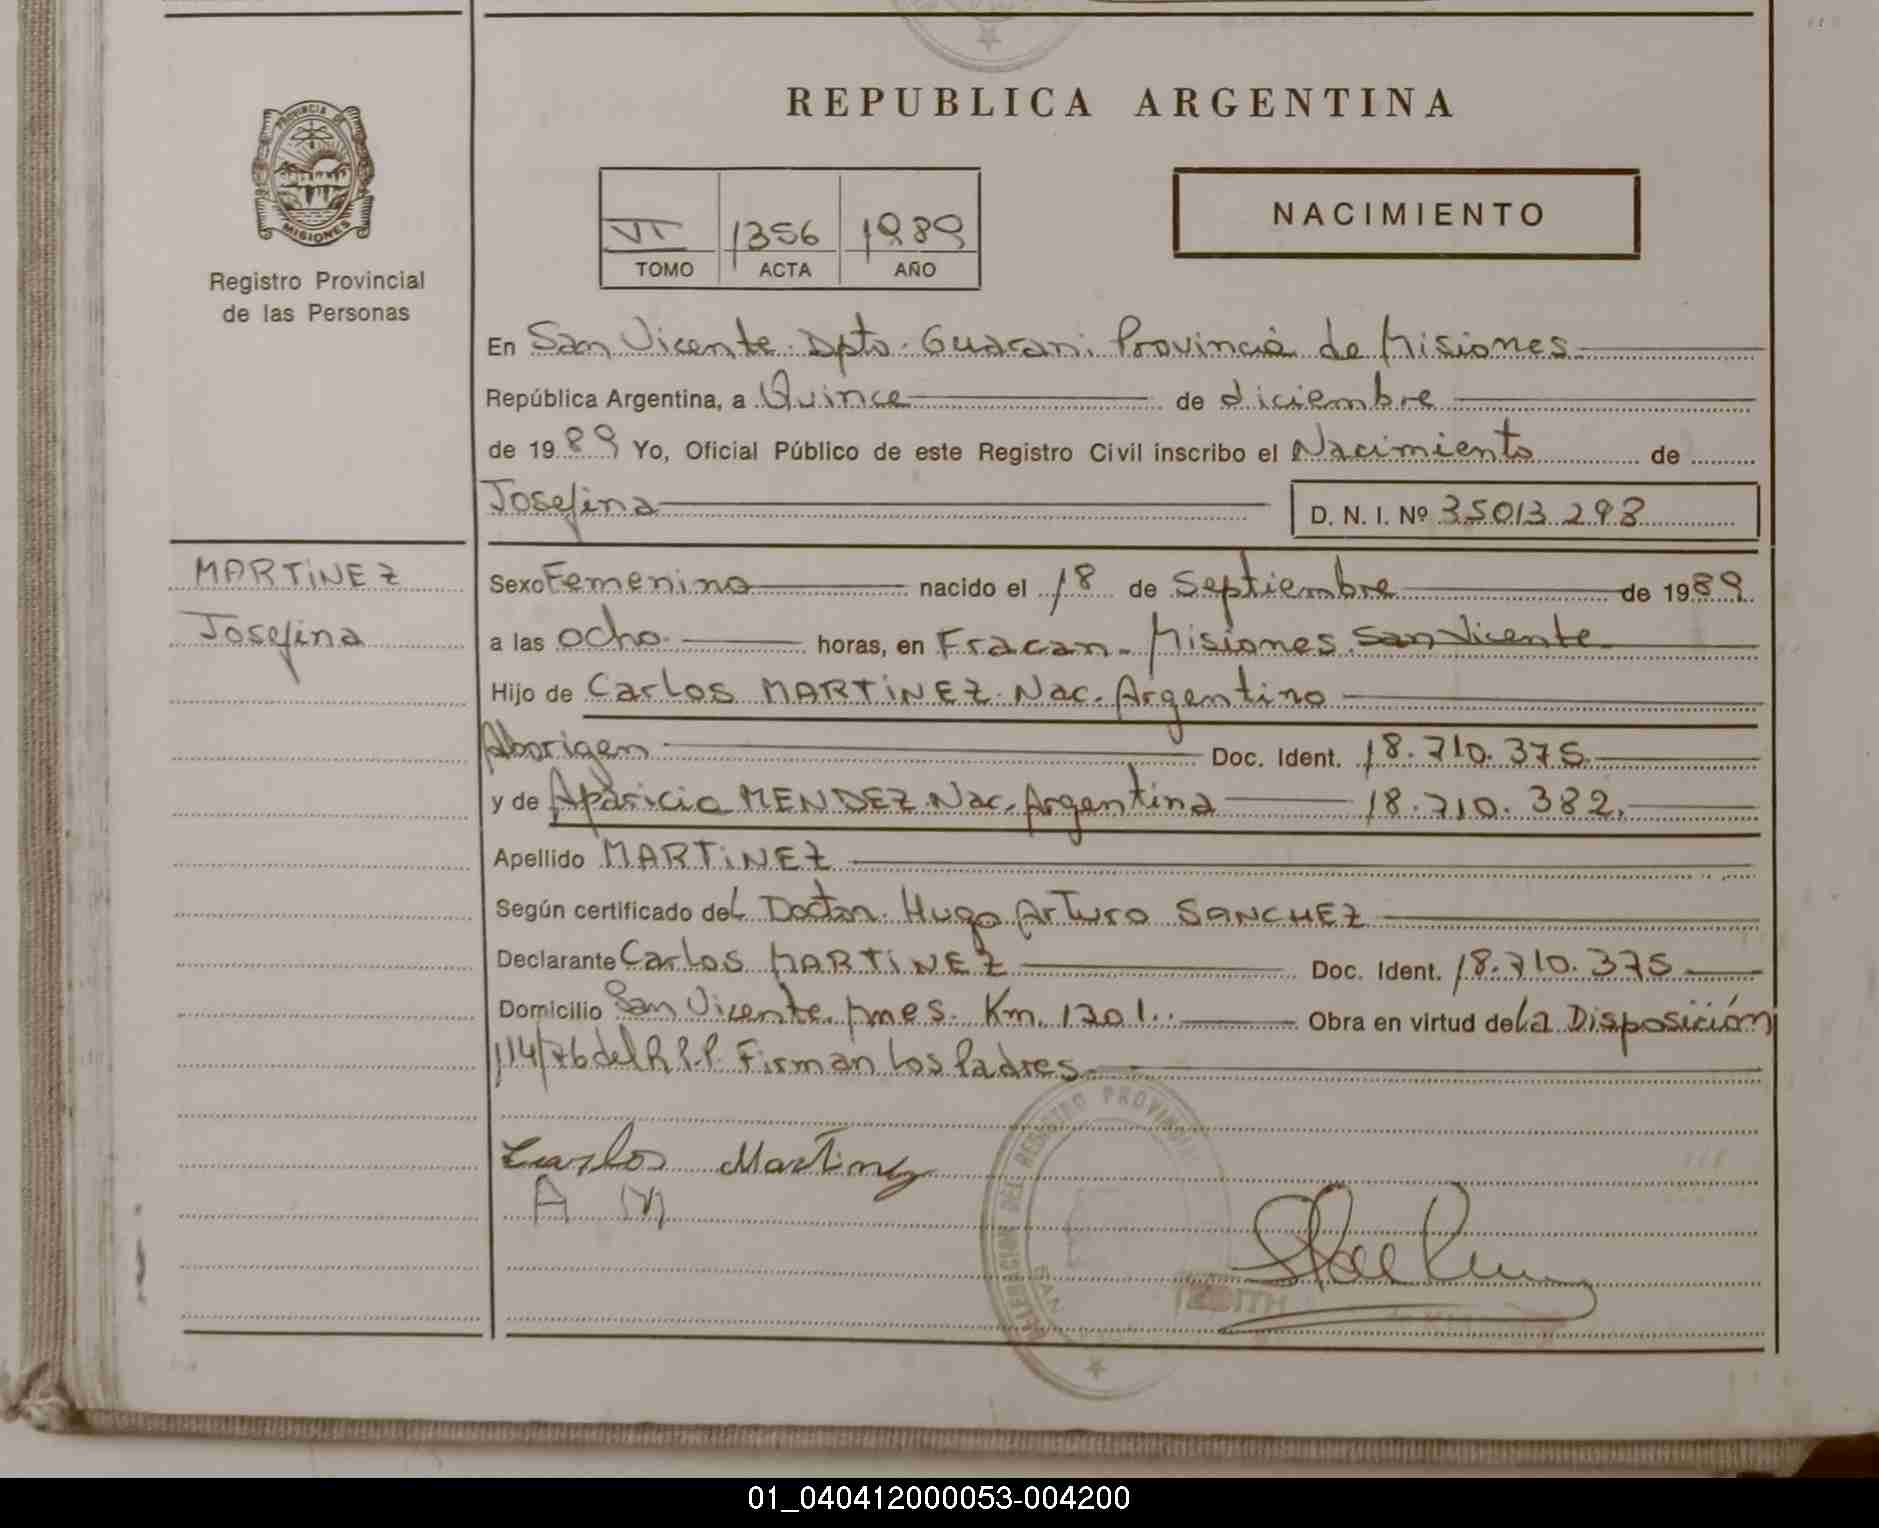 REPUBLICA ARGENTINA
PROVINCIA DE
MISIONES
Registro Provincial
de las Personas
VI 1356 1989
TOMO ACTA AÑO
NACIMIENTO
En San Vicente Dpto. Guarani Provincia de Misiones
República Argentina, a Quince de diciembre
de 1989 Yo, Oficial Público de este Registro Civil inscribo el Nacimiento de
Josefina D. N. I. Nº 35013298
MARTINEZ
Josefina
Sexo Femenino nacido el 18 de Septiembre de 1989
a las ocho horas, en Fracan - Misiones San Vicente
Hijo de Carlos MARTINEZ. Nac. Argentino
Aborigen Doc. Ident. 18.710.375
y de Aparicia MENDEZ Nac. Argentina 18.710.382.
Apellido MARTINEZ
Según certificado del Doctor. Hugo Arturo SANCHEZ
Declarante Carlos MARTINEZ Doc. Ident. 18.710.375
Domicilio San Vicente mnes. Km. 1201. Obra en virtud de la Disposición
114/76 del R.P.P. Firman los Padres
Carlos Martinez
A M
DEL REGISTRO PROVINCIAL
SAN
01_040412000053-004200